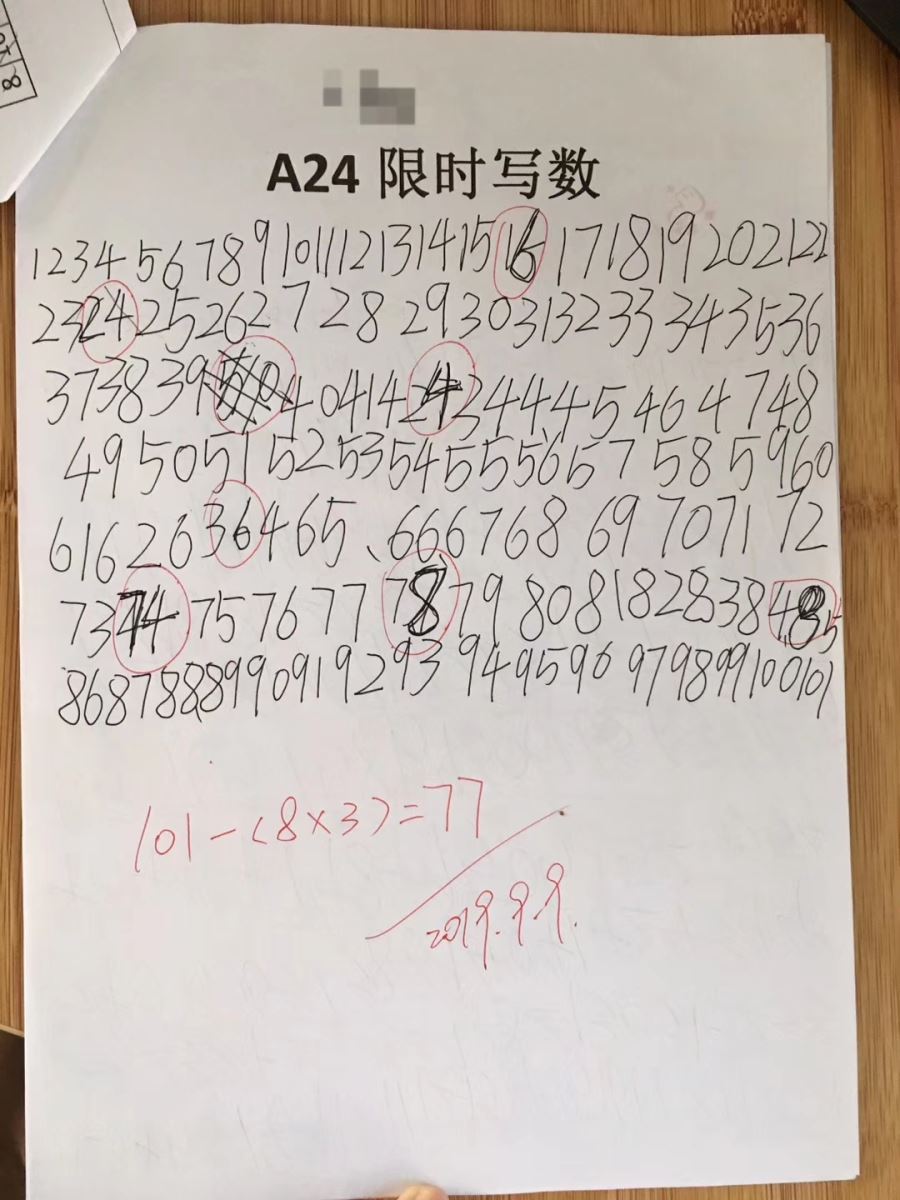 A24 限时写数
1 2 3 4 5 6 7 8 9 10 11 12 13 14 15 16 17 18 19 20 21 22
23 24 25 26 27 28 29 30 31 32 33 34 35 36
37 38 39 40 41 42 43 44 45 46 47 48
49 50 51 52 53 54 55 56 57 58 59 60
61 62 63 64 65、66 67 68 69 70 71 72
73 74 75 76 77 78 79 80 81 82 83 84 85
86 87 88 89 90 91 92 93 94 95 96 97 98 99 100 101
101-(8×3)=77
2019.9.9.